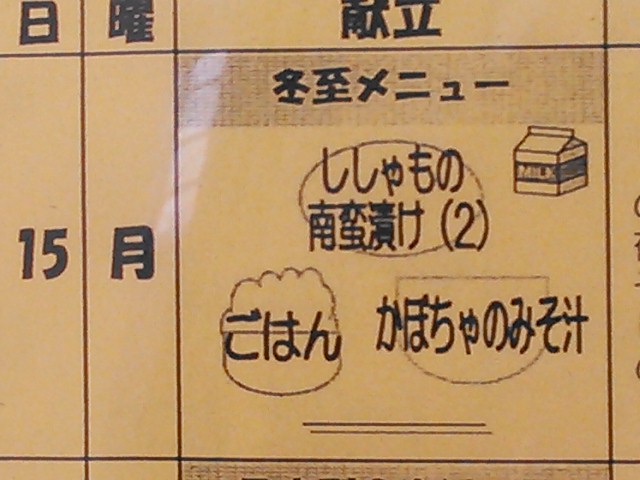 日 曜 献立
冬至メニュー
MILK
ししゃもの
南蛮漬け(2)
15 月
ごはん かぼちゃのみそ汁